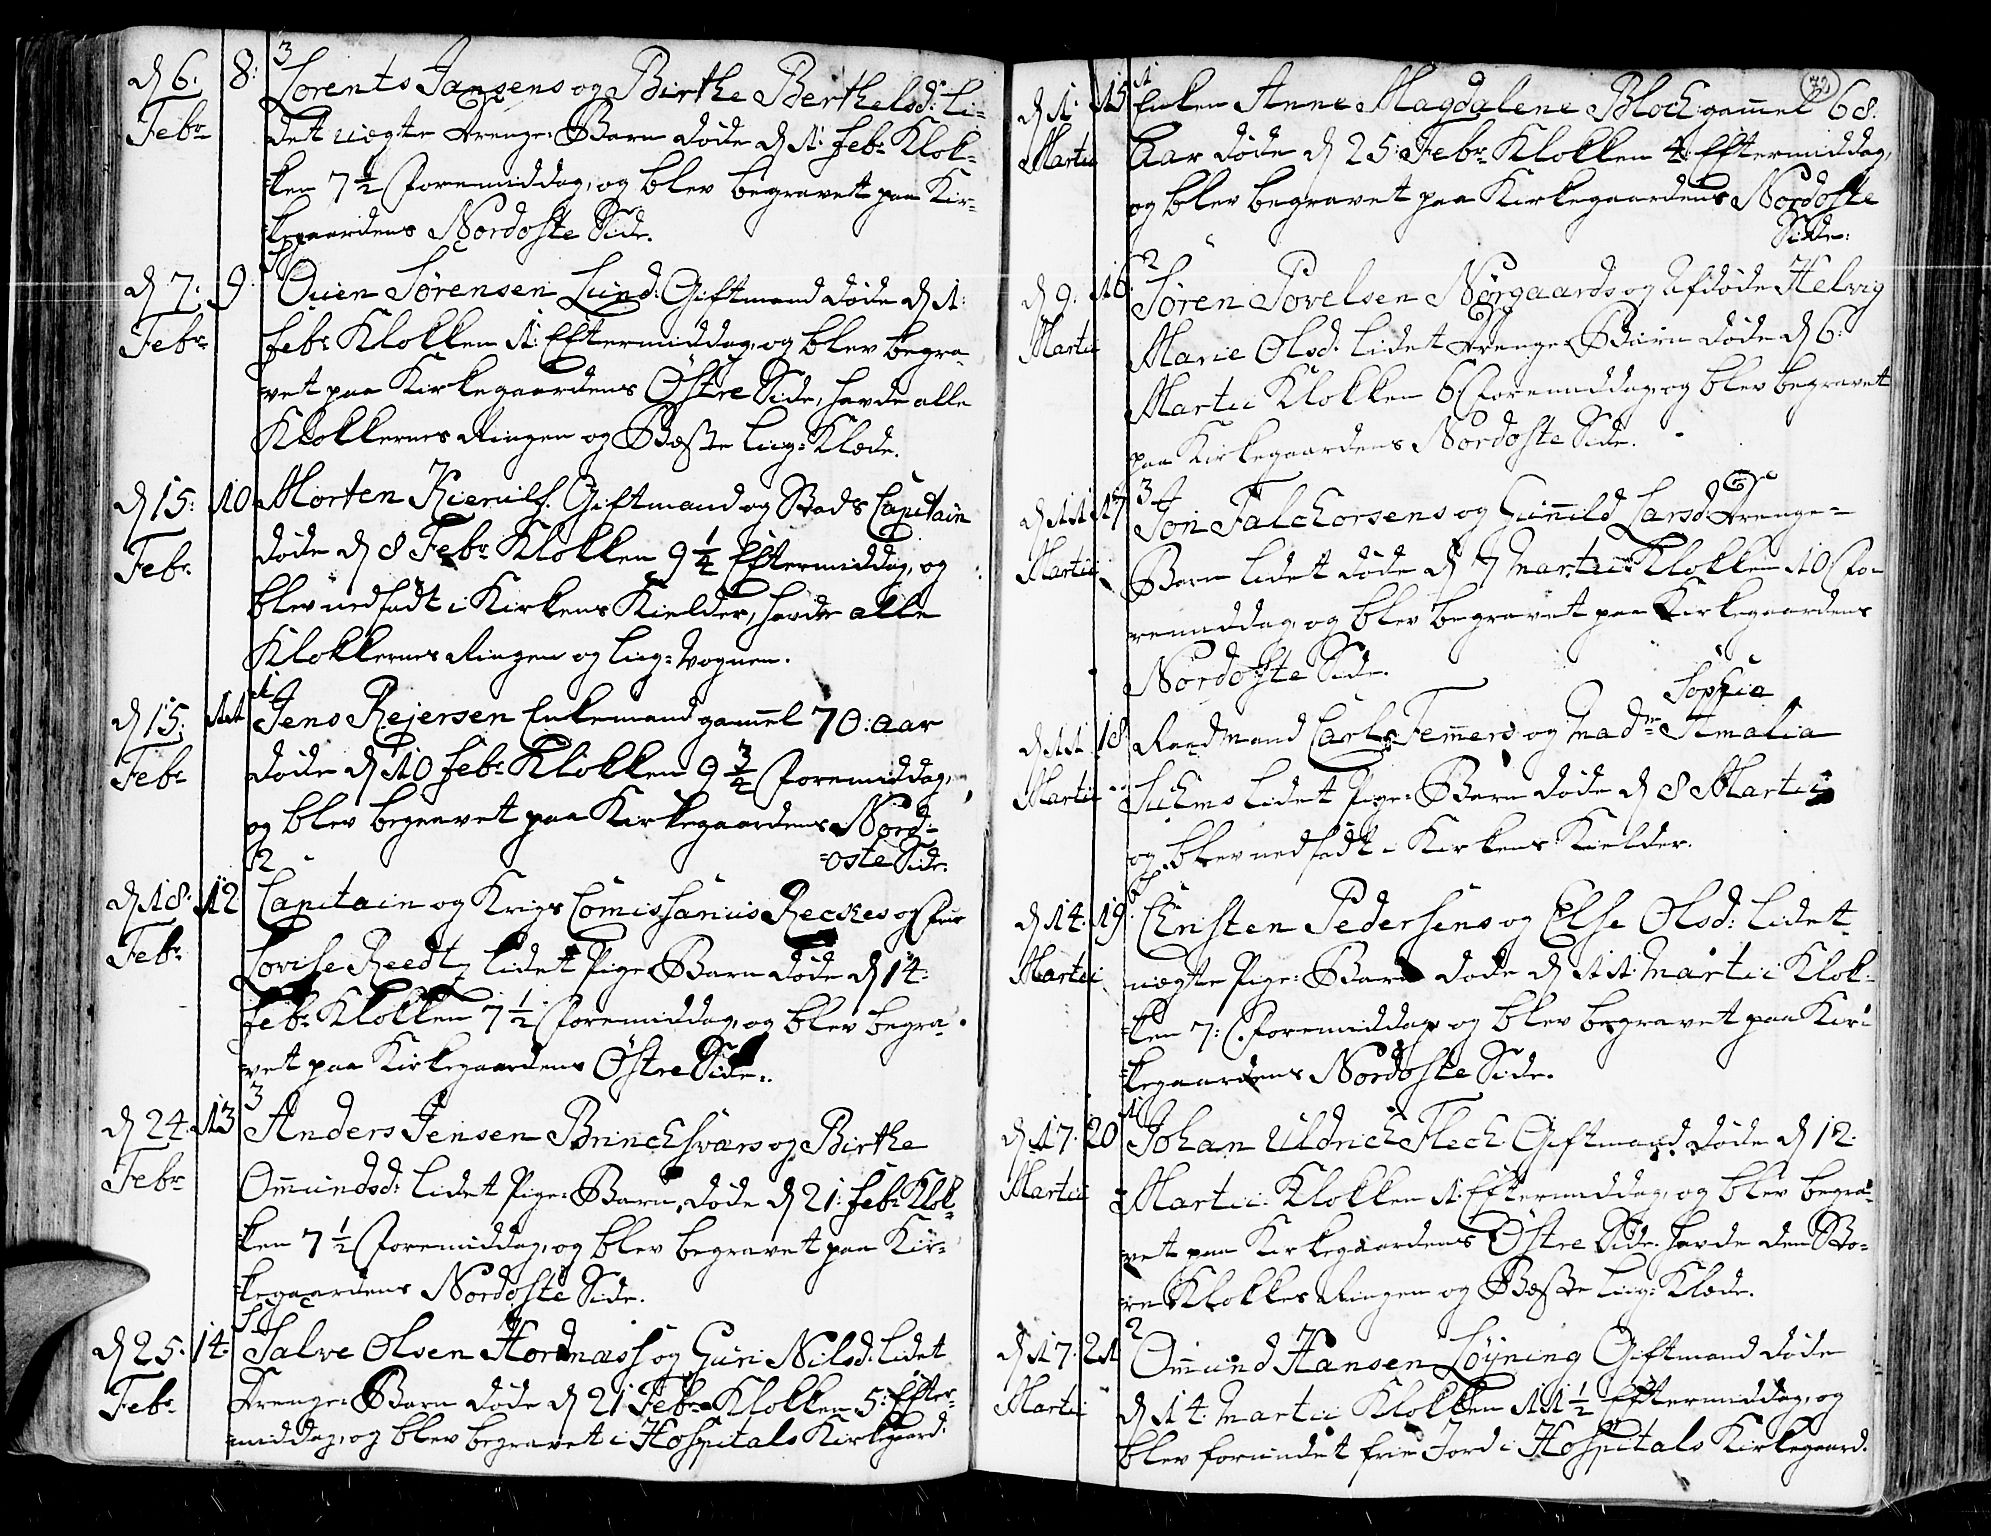 d 6: 8: 3 Lorents Jansens og Birthe Berthelsd: li-
Febr det uægte Drenge: Barn døde d 1: Febr Klok-
-ken 7 1/2 Foremiddag, og blev begravet paa Kir-
-kegaardens Nordoste Side.
d 7: 9 Ouen Sørensen Lund: Giftmand døde d 1:
Febr Febr Klokken 1: Eftermiddag, og blev begra-
-vet paa Kirkegaardens Østre Side, havde alle
Klokkernes Ringen og Bæste Liig: Klæde.
d 15: 10 Morten Giftmand og Stads Capitain
døde d 8 Febr Klokken 9 1/4 Eftermiddag, og
Febr blev nedsadt i Kirkens Kielder, havde alle
Klokkernes Ringen og Liig: Vognen.
d 15: 11 1 Jens Rejersen Enkemand gamel 70: aar
Febr døde d 10 Febr Klokken 9 3/4 Foremiddag,
og blev begravet paa Kirkegaardens Nord-
-oste Side.
d 18: 12 2 Capitain og Krigs Comissarius Reckes og Frue
Febr Lovise Reedtz lidet Pige: Barn døde d 14:
Febr Klokken 7 1/2 Foremiddag, og blev begra-
-vet paa Kirkegaardens Østre Side.
d 24: 13 3 Anders Jensen Brinchsværs og Birthe
Febr Omundsd: lidet Pige: Barn, døde d 21: Febr Klok-
-ken 7 1/2 Foremiddag, og blev begravet paa Kir-
-kegaardens Nordoste Side.
d 25: 14: Salve Olsen Hornæss og Guri Nilsd: lidet
Febr Drenge: Barn døde d 21 Febr Klokken 5: Efter-
-middag, og blev begravet i Hospitals Kirkegaard.
72
d 1: 15 1 Enken Anne Magdalene Bloch gamel 68:
Martii Aar døde d 25: Febr Klokken 4: Eftermiddag,
og blev begravet paa Kirkegaardens Nordoste
Side:
d 9: 16 2 Søren Povelsen Nørgaards og Afdøde Helvig
Martii Marie Olsd: lidet Drenge Barn døde d 6:
Martii Klokken 6: Foremiddag, og blev begravet
paa Kirkegaardens Nordoste Side.
d 11: 17 3 Jon Falchorsens og Gunild Larsd: Drenge-
Martii Barn lidet døde d 7 Martii Klokken 10 Fo-
remiddag, og blev begravet paa Kirkegaardens
Nordoste Side.
Sophia
d 11: 18 Raadmand Carl Femers og Madm Amalia
Martii Suhms lidet Pige: Barn døde d 8 Martii
og blev nedsadt i Kirkens Kielder.
d 14: 19 Christen Pedersens og Else Olsd: lidet
Martii uægte Pige: Barn døde d 11: Martii Klok-
-ken 7: Foremiddag og blev begravet paa Kir-
-kegaardens Nordoste Side.
d 17: 20 1 Johan Uldrich Flech Giftmand døde d 12:
Martii Martii: Klokken 1: Eftermiddag, og blev begra-
vet paa Kirkegaardens Østre Side. havde den Sto-
-re Klokkes Ringen og Bæste Liig: Klæde.
d 17: 21 2 Omund Hansen Løyning Giftmand døde
Martii d 14: Martii Klokken 11 1/2 Eftermiddag, og
blev forundet frie Jord i Hospitals Kirkegaard.